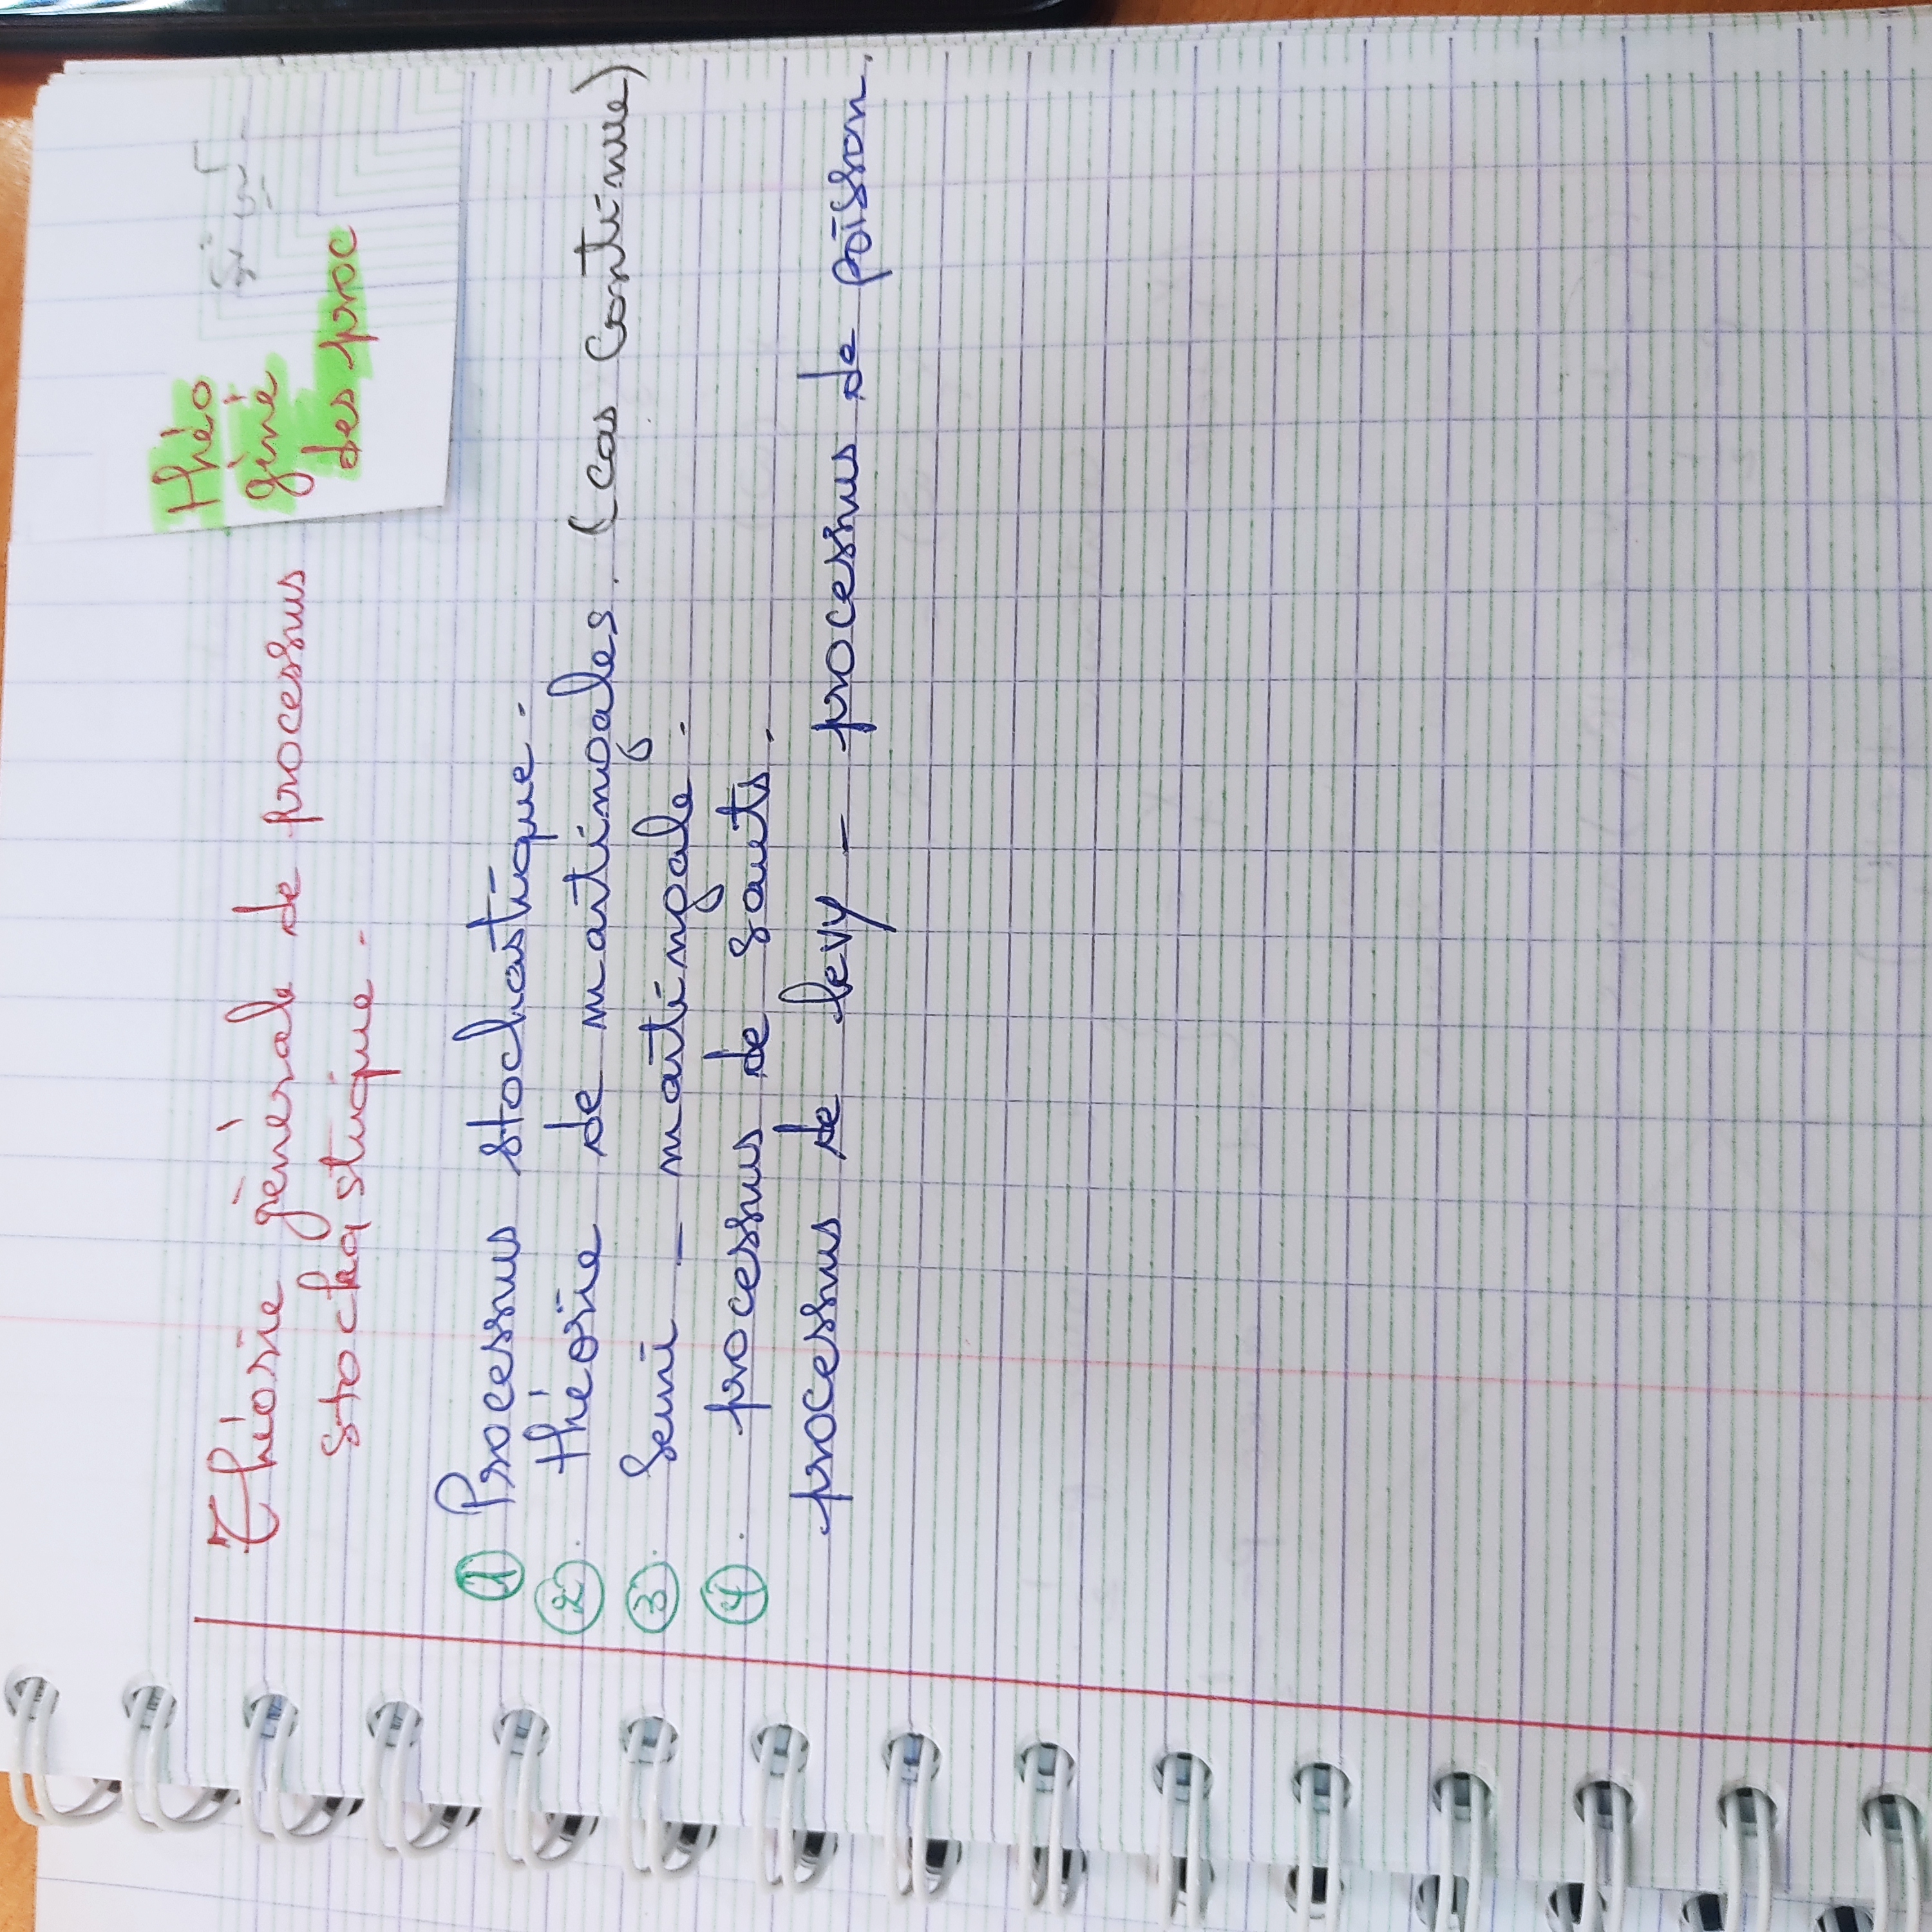 Théorie générale de processus
stochastique.
théo
géné
des proc
① Processus stochastique.
②. théorie de martingales. (cas continue)
③. Semi - martingale.
④. processus de sauts.
processus de levy - processus de poisson.